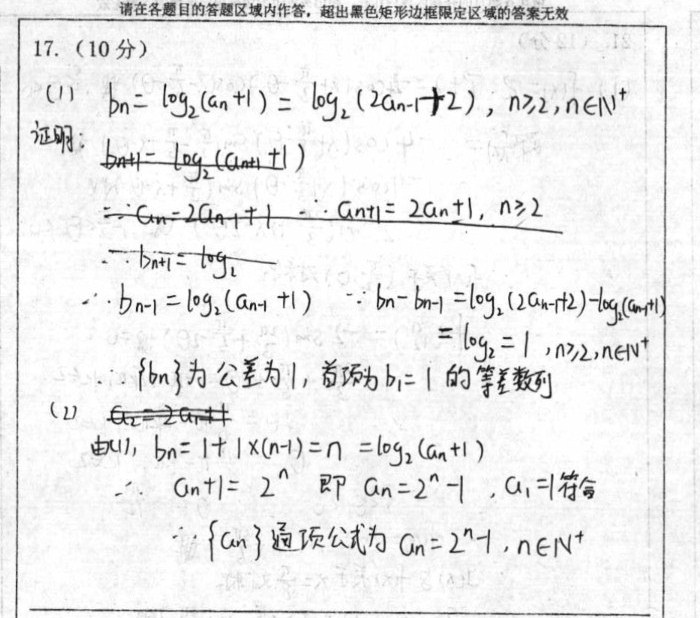 请在各题目的答题区域内作答，超出黑色矩形边框限定区域的答案无效
17.（10分）
(1) bn = log₂(an+1) = log₂(2an-1+2), n≥2, n∈N⁺
证明:
bn+1 = log₂(an+1+1)
= ∵ an=2an-1+1 ∴ an+1 = 2an+1, n≥2
∴ bn+1 = log₂
∴ bn-1 = log₂(an-1+1) ∵ bn-bn-1 = log₂(2an-1+2)-log₂(an-1+1)
= log₂ = 1, n≥2, n∈N⁺
∴ {bn}为公差为1, 首项为b₁=1的等差数列
(2) a₂=2an+1
由(1), bn = 1+1×(n-1) = n = log₂(an+1)
∴ an+1 = 2ⁿ 即 an=2ⁿ-1, a₁=1符合
∴ {an}通项公式为 an=2ⁿ-1, n∈N⁺